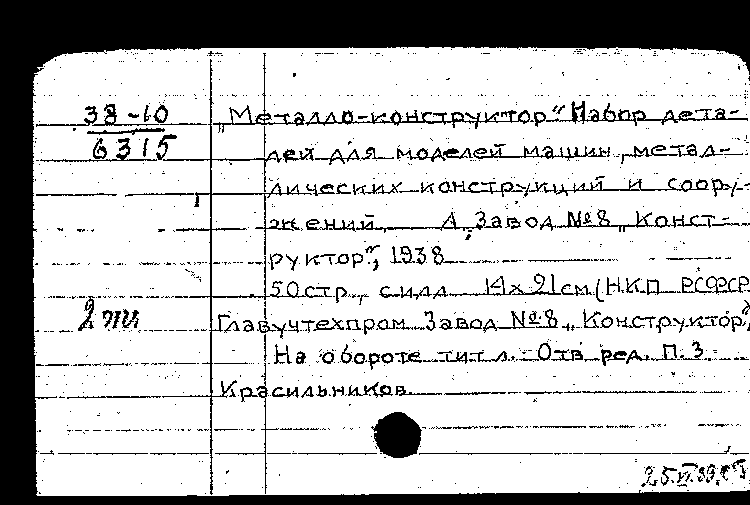 38-10
6315
„Металло-конструктор“ Набор дета-
лей для моделей машин, метал-
лических конструкций и соору-
жений. Л, Завод №8 „Конст-
руктор“, 1938
50стр., силл 14х21см (НКП РСФСР
2 эки
Главучтехпром Завод №8 „Конструктор“)
На обороте тит л. Отв ред. П. З.
Красильников
25.VI.39.